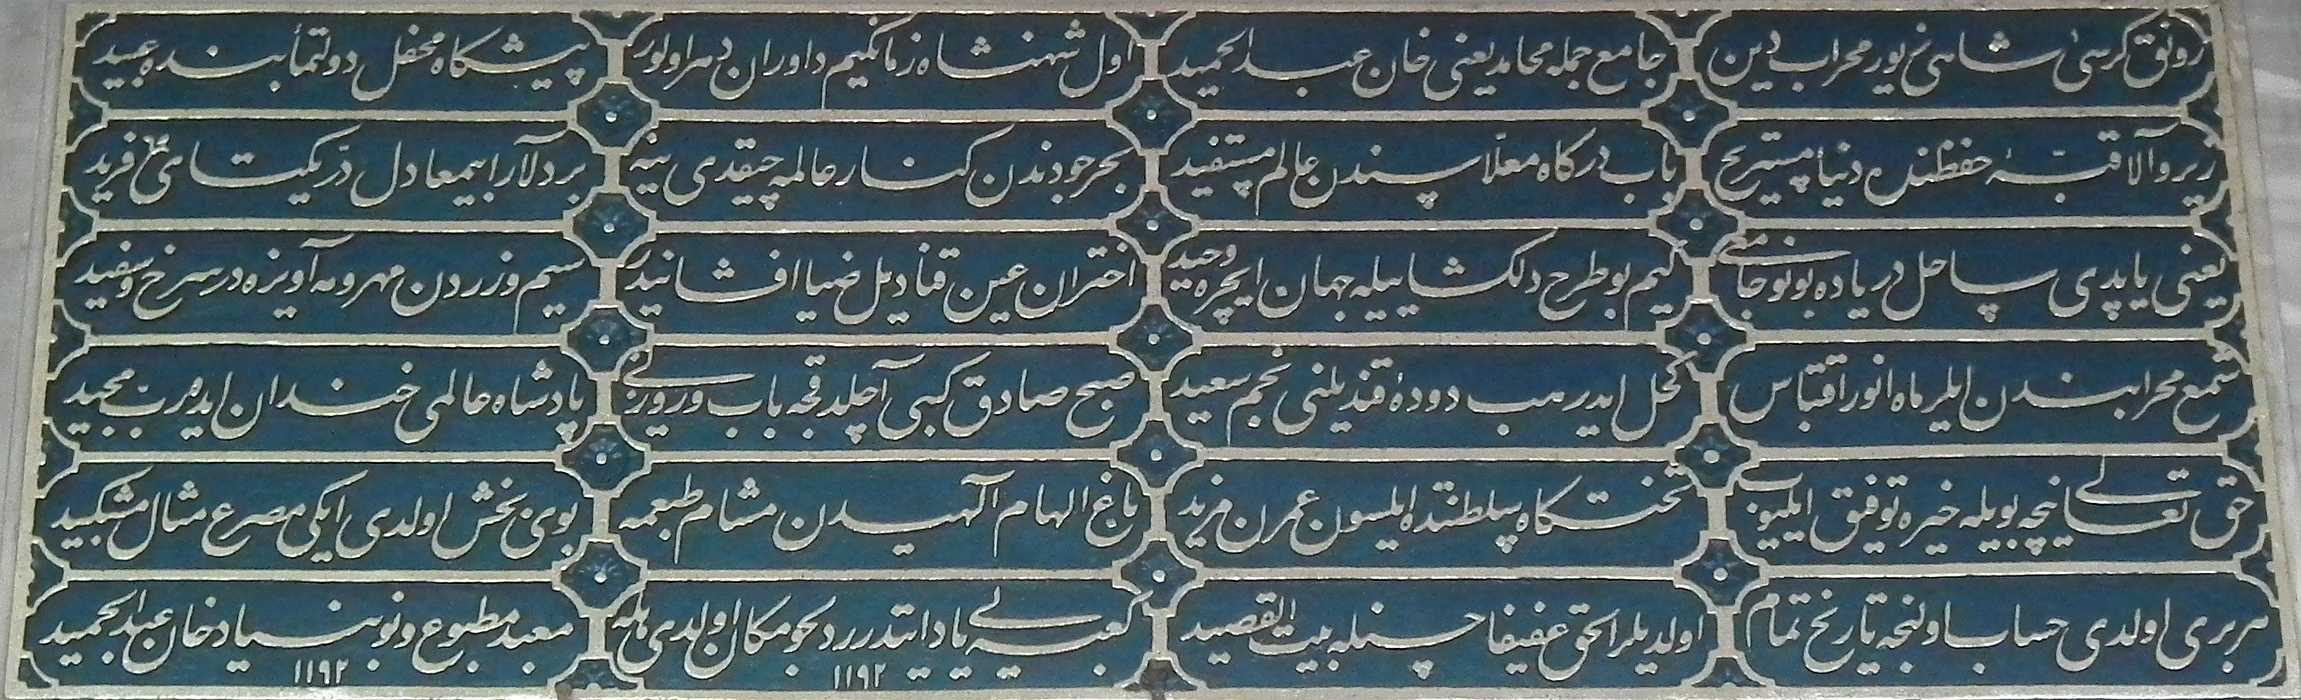 رونق كرسئ شاهى زيور محراب دين جامع جمله محامد يعنى خان عبد الحميد اول شهنشاه زمانكيم داوران دهر اولور پيشكاه محفل دولتمأبنده عبيد
زير والا قبۀ حفظنده دنيا مستريح باب دركاه معلاسندن عالم مستفيد بحر جودندن كنار عالمه چيقدى ينه بر دلارا سيمعادل در يكتاى فريد
يعنى ياپدى ساحل درياده بو نو جامعى كيم بو طرح دلكشايله جهان ايچره وحيد اختران عين قناديل ضيا افشانيدر سيم و زردن مهر و مه آويزه در سرخ و سفيد
شمع محرابندن ايلر ماه انور اقتباس كحل ايدر هب دودۀ قنديلنى نجم سعيد صبح صادق كبى آچلدقجه باب ورورنى پادشاه عالمى خندان ايده رب مجيد
حق تعالى نيچه بويله خيره توفيق ايليوب تختكاه سلطنتده ايلسون عمرن مزيد باغ الهام الٓهيدن مشام طبعمه بوى بخش اولدى ايكى مصرع مثال مشكبيد
هر برى اولدى حساب اولنجه تاريخ تمام اولديلر الحق عفيفا بيت القصيد كعبه يى ياد ايتدرر دلجو مكان اولدى هله ١١٩٢ معبد مطبوع و نو بنياد خان عبد الحميد ١١٩٢